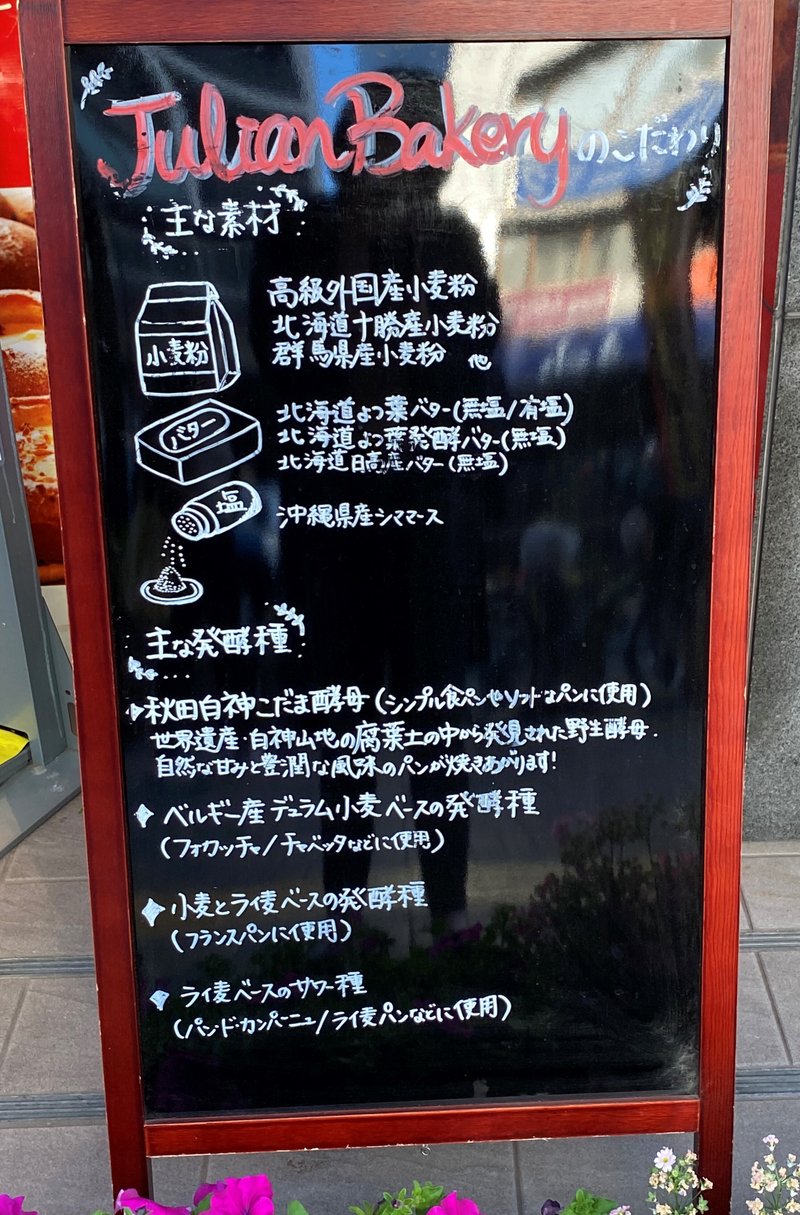 Julian Bakeryのこだわり
主な素材
高級外国産小麦粉
北海道十勝産小麦粉
群馬県産小麦粉 他
小麦粉
北海道よつ葉バター(無塩/有塩)
北海道よつ葉発酵バター(無塩)
北海道日高産バター(無塩)
バター
塩
沖縄県産シママース
主な発酵種
秋田白神こだま酵母(シンプル食パンやソフトなパンに使用)
世界遺産・白神山地の腐葉土の中から発見された野生酵母.
自然な甘みと豊潤な風味のパンが焼きあがります!
ベルギー産デュラム小麦ベースの発酵種
(フォカッチャ/チャベッタなどに使用)
小麦とライ麦ベースの発酵種
(フランスパンに使用)
ライ麦ベースのサワー種
(パン・ド・カンパーニュ/ライ麦パンなどに使用)